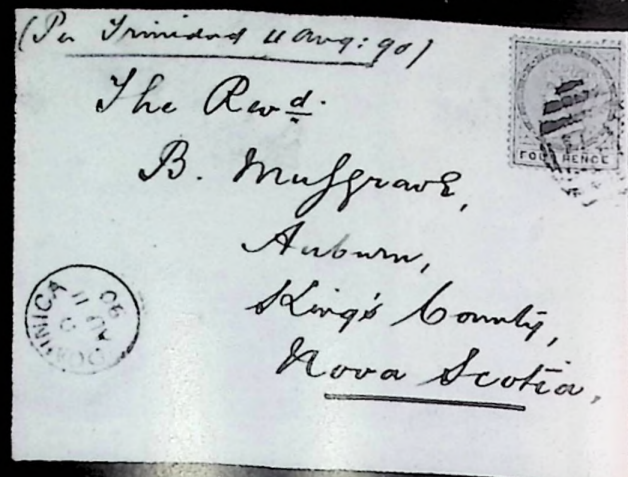 (Per Trinidad 11 Aug: 90)
The Revd.
B. Musgrave,
Auburn,
King's County,
Nova Scotia,
FOUR PENCE
DOMINICA
AU 11
90